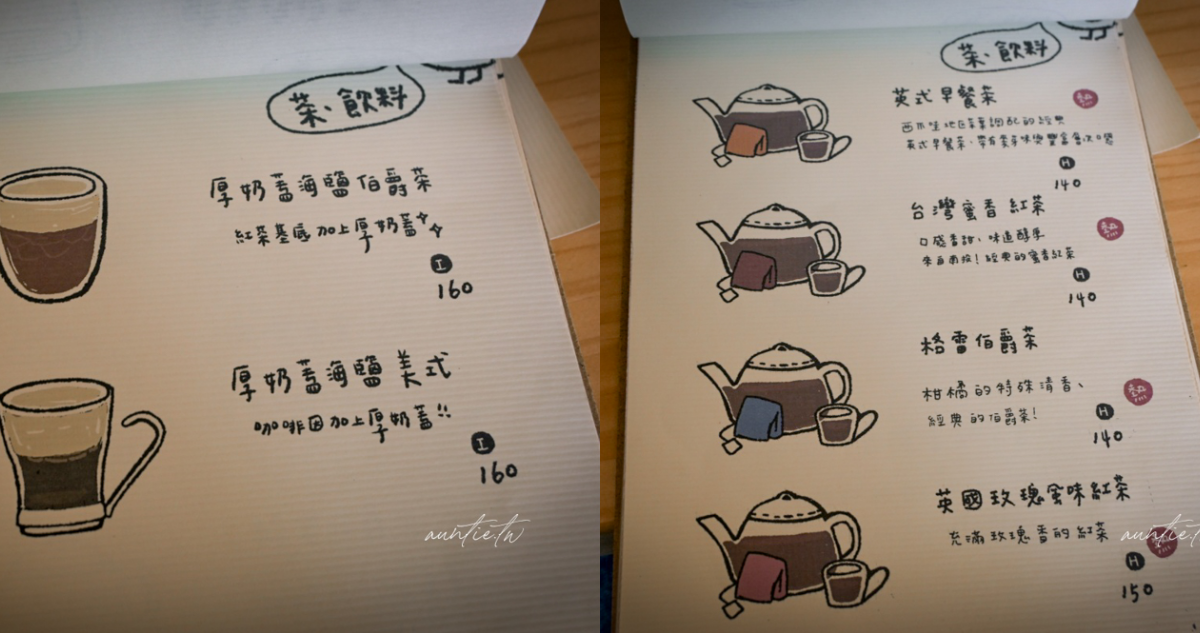 茶、飲料
厚奶蓋海鹽伯爵茶
紅茶基底加上厚奶蓋
I
160
厚奶蓋海鹽美式
咖啡因加上厚奶蓋!!
I
160
auntie.tw
茶、飲料
英式早餐茶
熱
英式早餐茶、帶有茶芽味
H
140
台灣蜜香紅茶
熱
口感香甜、味道醇厚
來自南投!經典的蜜香紅茶
H
140
格雷伯爵茶
柑橘的特殊清香、
熱
經典的伯爵茶!
H
140
英國玫瑰風味紅茶
充滿玫瑰香的紅茶
H
150
auntie.t